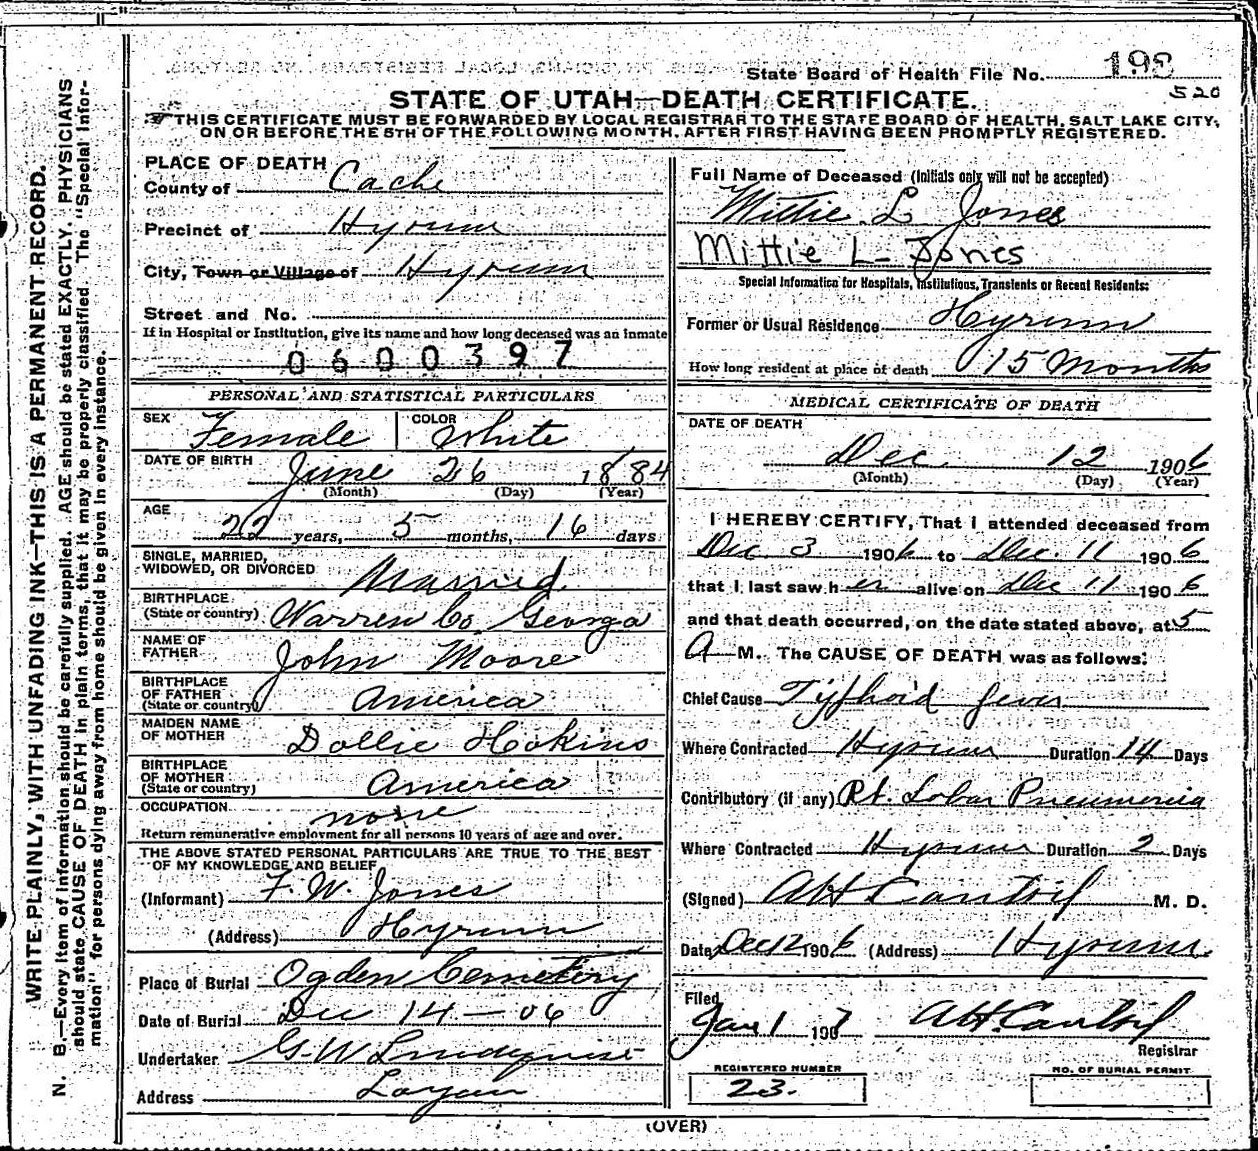 State Board of Health File No. 198
520
STATE OF UTAH—DEATH CERTIFICATE.
THIS CERTIFICATE MUST BE FORWARDED BY LOCAL REGISTRAR TO THE STATE BOARD OF HEALTH, SALT LAKE CITY,
ON OR BEFORE THE 5TH OF THE FOLLOWING MONTH, AFTER FIRST HAVING BEEN PROMPTLY REGISTERED.
WRITE PLAINLY, WITH UNFADING INK—THIS IS A PERMANENT RECORD.
N. B.—Every item of information should be carefully supplied. AGE should be stated EXACTLY. PHYSICIANS
should state CAUSE OF DEATH in plain terms, that it may be properly classified. The "Special Infor-
mation" for persons dying away from home should be given in every instance.
PLACE OF DEATH
County of Cache
Precinct of Hyrum
City, Town or Village of Hyrum
Street and No.
If in Hospital or Institution, give its name and how long deceased was an inmate
0600397
PERSONAL AND STATISTICAL PARTICULARS
SEX Female COLOR White
DATE OF BIRTH June 26 1884
(Month) (Day) (Year)
AGE 22 years, 5 months, 16 days
SINGLE, MARRIED,
WIDOWED, OR DIVORCED Married
BIRTHPLACE
(State or country) Warren Co Georga
NAME OF
FATHER John Moore
BIRTHPLACE
OF FATHER
(State or country) America
MAIDEN NAME
OF MOTHER Dollie Hokins
BIRTHPLACE
OF MOTHER
(State or country) America
OCCUPATION none
Return remunerative employment for all persons 10 years of age and over.
THE ABOVE STATED PERSONAL PARTICULARS ARE TRUE TO THE BEST
OF MY KNOWLEDGE AND BELIEF
(Informant) F. W. Jones
(Address) Hyrum
Place of Burial Ogden Cemetery
Date of Burial Dec 14 — 06
Undertaker G. W Lindquist
Address Logan
Full Name of Deceased (Initials only will not be accepted)
Mittie L Jones
Mittie L- Jones
Special Information for Hospitals, Institutions, Transients or Recent Residents:
Former or Usual Residence Hyrum
How long resident at place of death 15 Months
MEDICAL CERTIFICATE OF DEATH
DATE OF DEATH
Dec 12 1906
(Month) (Day) (Year)
I HEREBY CERTIFY, That I attended deceased from
Dec 3 1906 to Dec. 11 1906
that I last saw h er alive on Dec 11 1906
and that death occurred, on the date stated above, at 5
A M. The CAUSE OF DEATH was as follows:
Chief Cause Tyfhoid fever
Where Contracted Hyrum Duration 14 Days
Contributory (if any) Rt. Lobar Pneumonia
Where Contracted Hyrum Duration 2 Days
(Signed) M. D.
Date Dec 12 1906 (Address) Hyrum
Filed
Jan 1 1907
Registrar
REGISTERED NUMBER
23.
NO. OF BURIAL PERMIT
(OVER)